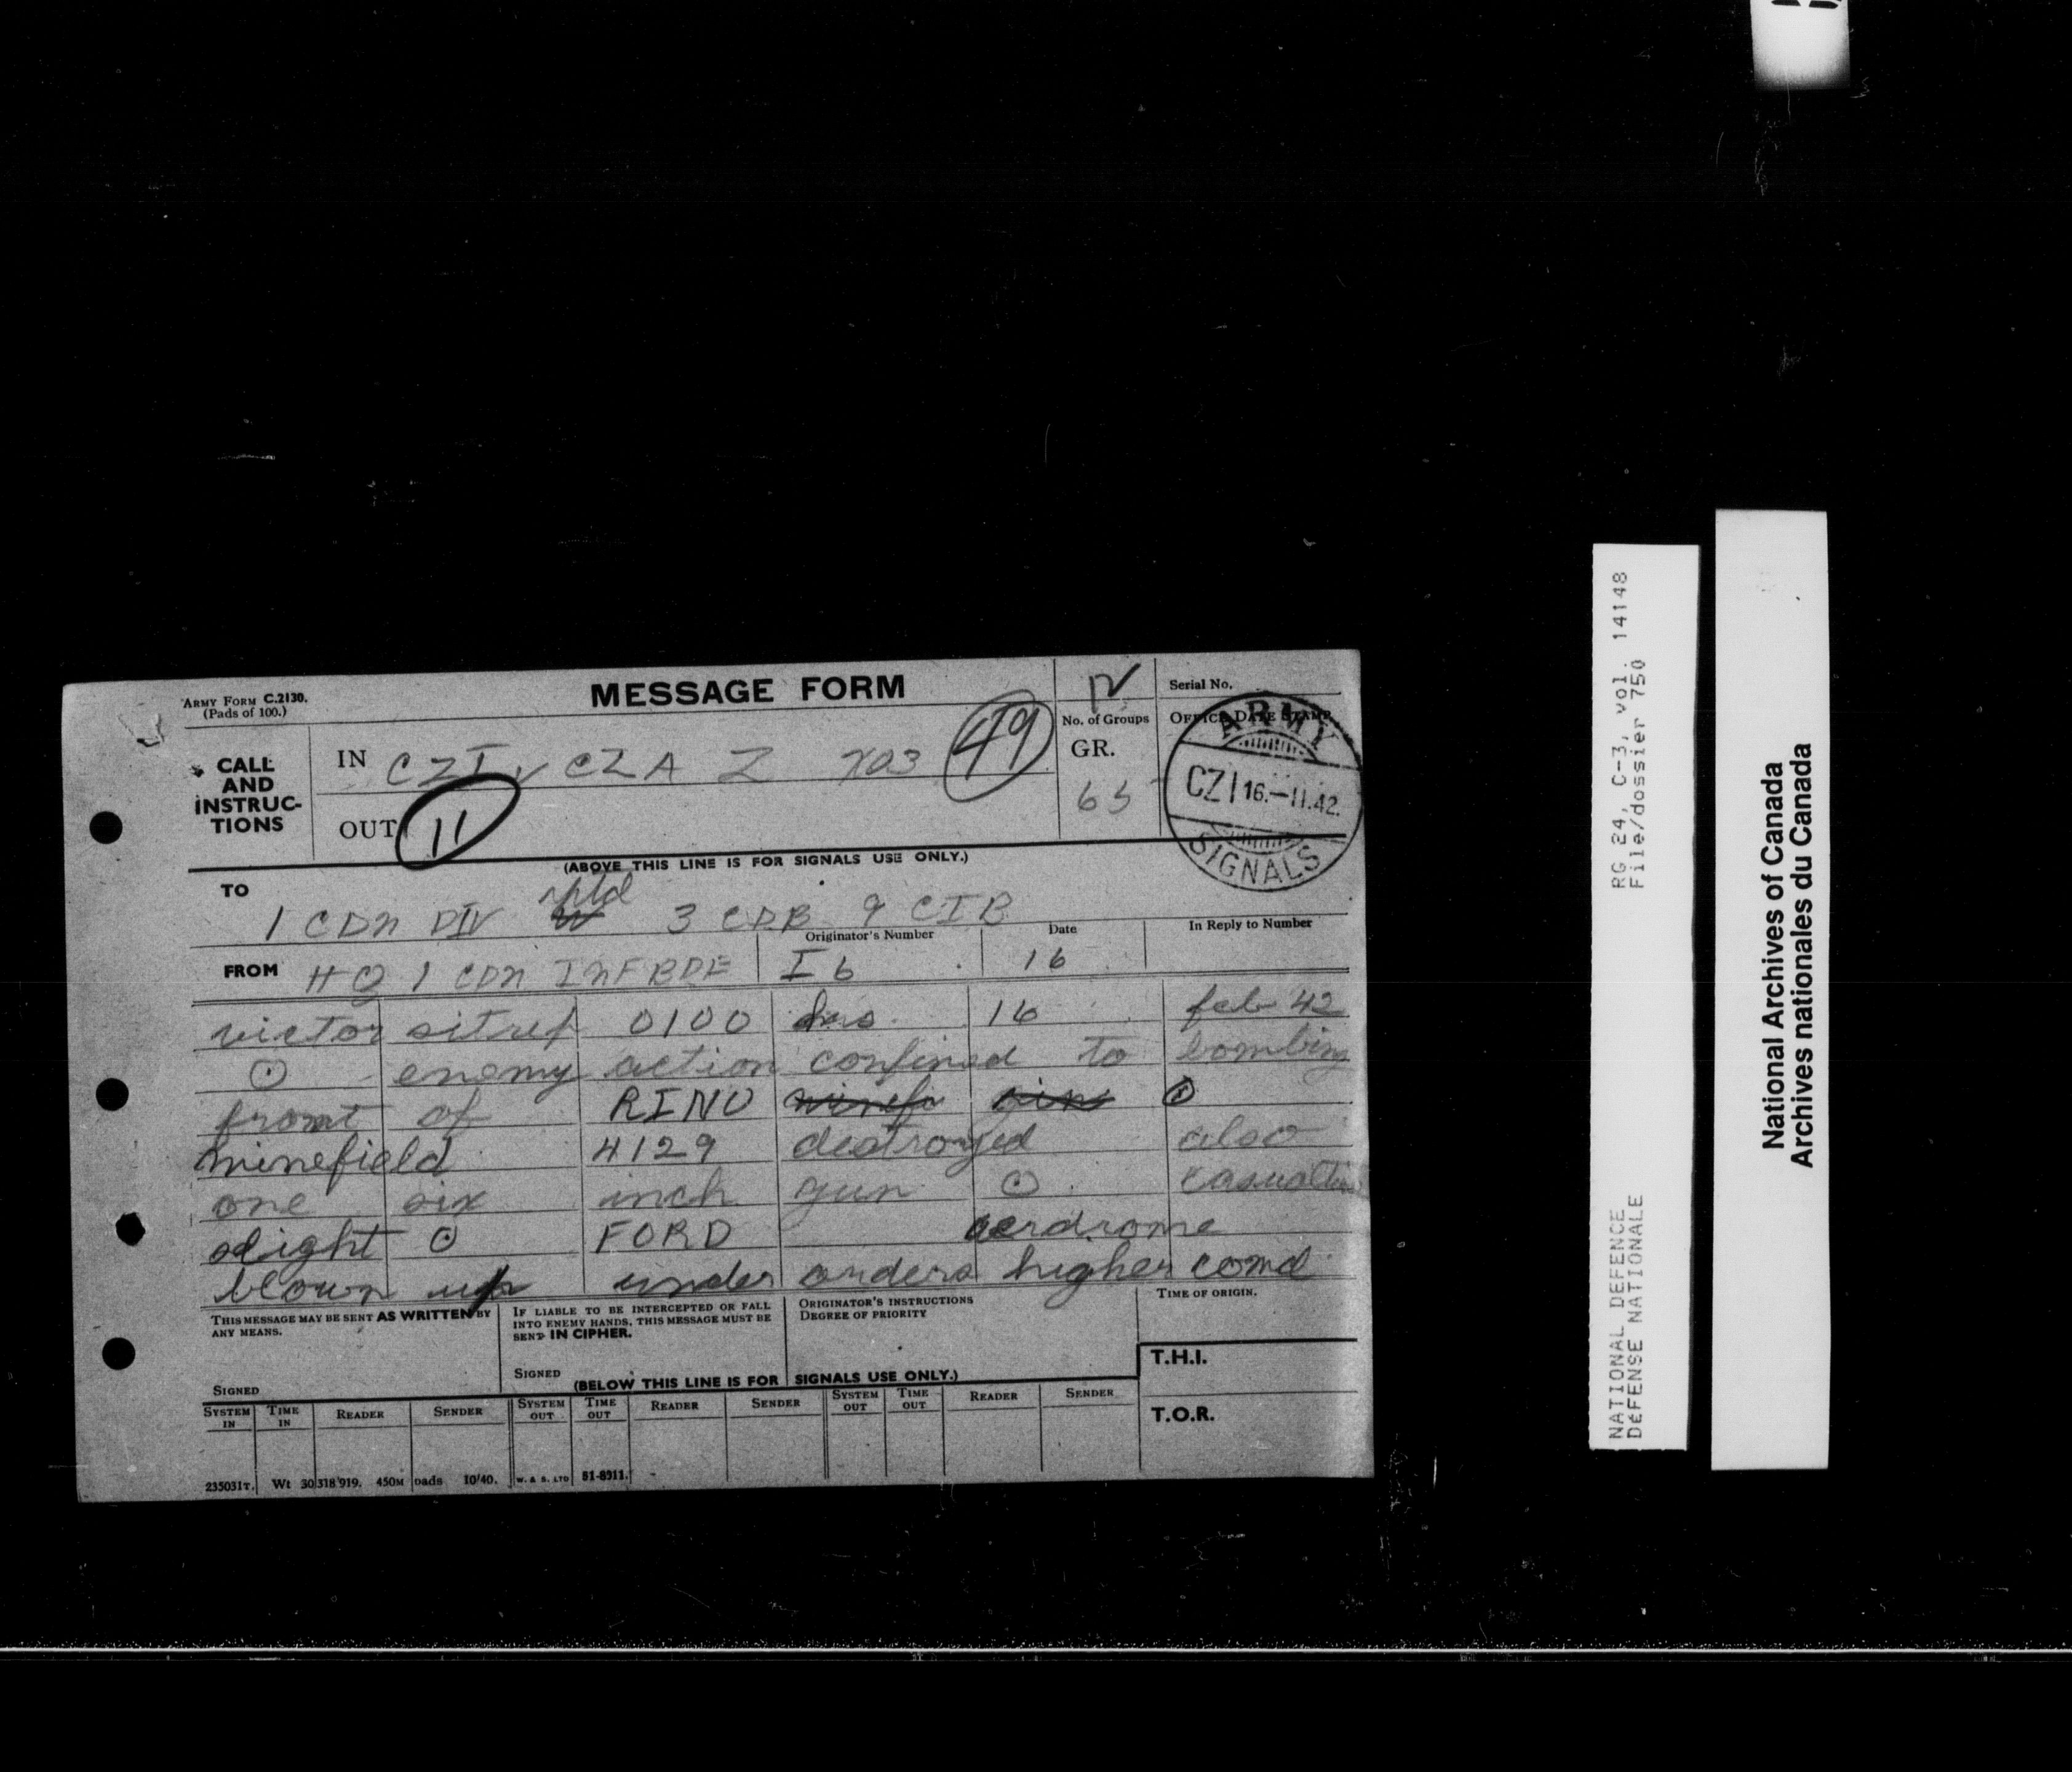 ARMY FORM C.2130.
(Pads of 100.)
MESSAGE FORM
Serial No.
No. of Groups
OFFICE DATE STAMP
CALL AND INSTRUC-TIONS
IN CZI v CZA Z 49
GR.
65
OUT 11
ARMY
CZI 16.-II.42.
SIGNALS
(ABOVE THIS LINE IS FOR SIGNALS USE ONLY.)
TO
1 CDN DIV rptd 3 CDB 9 CIB
Originator's Number
Date
In Reply to Number
FROM HQ 1 CDN INF BDE I6 16
victor sitrep 0100 hrs 16 feb 42
⊙ enemy action confined to bombing
front of RINO ⊙
minefield 4129 destroyed also
one six inch gun ⊙ casualties
slight ⊙ FORD aerdrome
blown up under orders higher comd
THIS MESSAGE MAY BE SENT AS WRITTEN BY ANY MEANS.
SIGNED
IF LIABLE TO BE INTERCEPTED OR FALL INTO ENEMY HANDS, THIS MESSAGE MUST BE SENT IN CIPHER.
SIGNED
ORIGINATOR'S INSTRUCTIONS
DEGREE OF PRIORITY
TIME OF ORIGIN.
T.H.I.
T.O.R.
(BELOW THIS LINE IS FOR SIGNALS USE ONLY.)
SYSTEM IN TIME IN READER SENDER SYSTEM OUT TIME OUT READER SENDER SYSTEM OUT TIME OUT READER SENDER
235031T. Wt 30318/919. 450M pads 10/40. W. & S. LTD 51-8911.
RG 24, C-3, vol. 14148
File/dossier 750
NATIONAL DEFENCE
DÉFENSE NATIONALE
National Archives of Canada
Archives nationales du Canada